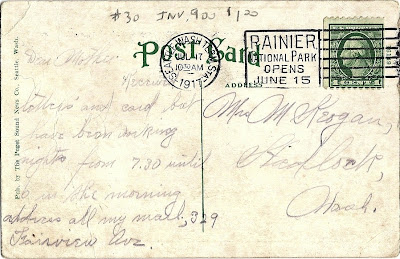 #30 INV, 900 $1.00
Post Card
SEATTLE, WASH. TERM. STA.
10 30 AM
1917
RAINIER
NATIONAL PARK
OPENS
JUNE 15
ADDRESS
Pub. by The Puget Sound News Co., Seattle, Wash.
Dear Mother
Received
letters and card but
have been working
nights from 7.30 until
in the morning
address all my mail, 329
Fairview Ave.
Mrs M Keogan,
Wash.